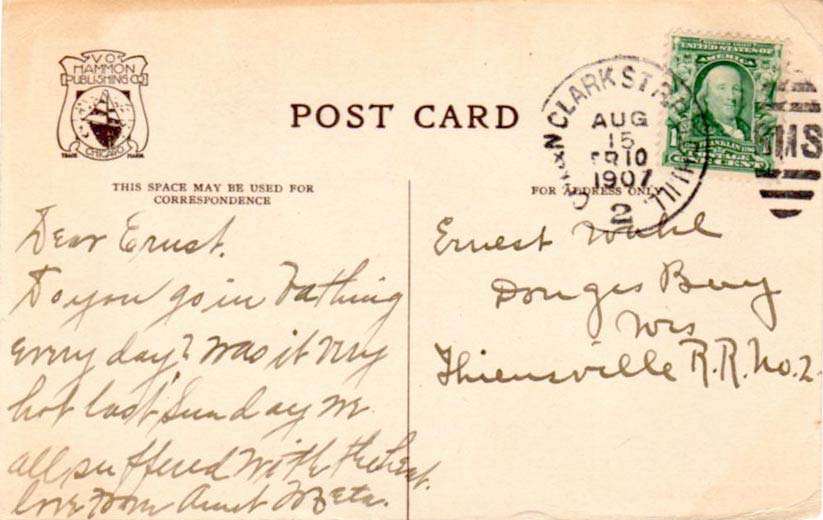 V.O.
HAMMON
PUBLISHING CO
TRADE MARK
CHICAGO
POST CARD
CLARK ST.
AUG
15
10
1907
2
SERIES 1902
UNITED STATES OF
AMERICA
FRANKLIN
POSTAGE
THIS SPACE MAY BE USED FOR
CORRESPONDENCE
FOR ADDRESS ONLY
Dear Ernst.
Do you go in Bathing
every day? Was it very
hot last Sunday we
all suffered with the heat.
love from Aunt Meta.
Ernest Wahl
Donges Bay
Wis
Thiensville R.R. No. 2.